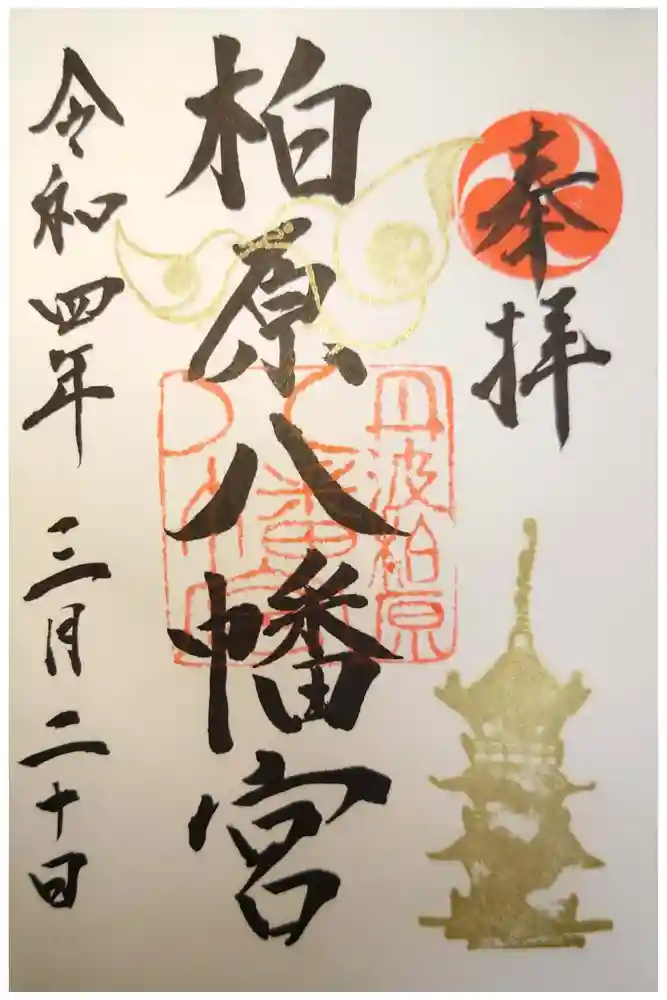 奉拝
丹波柏原
八幡宮
柏原八幡宮
令和四年 三月二十日